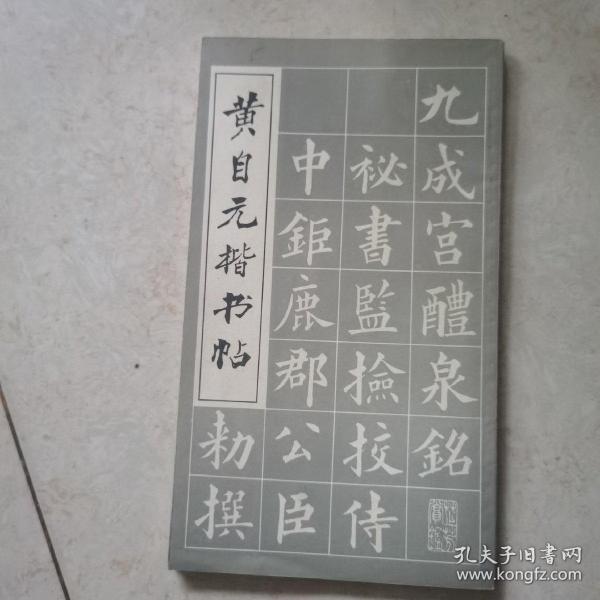 黄自元楷书帖
九成宫醴泉銘
秘書監撿挍侍
中鉅鹿郡公臣
勅撰
孔夫子旧書网
www.kongfz.com